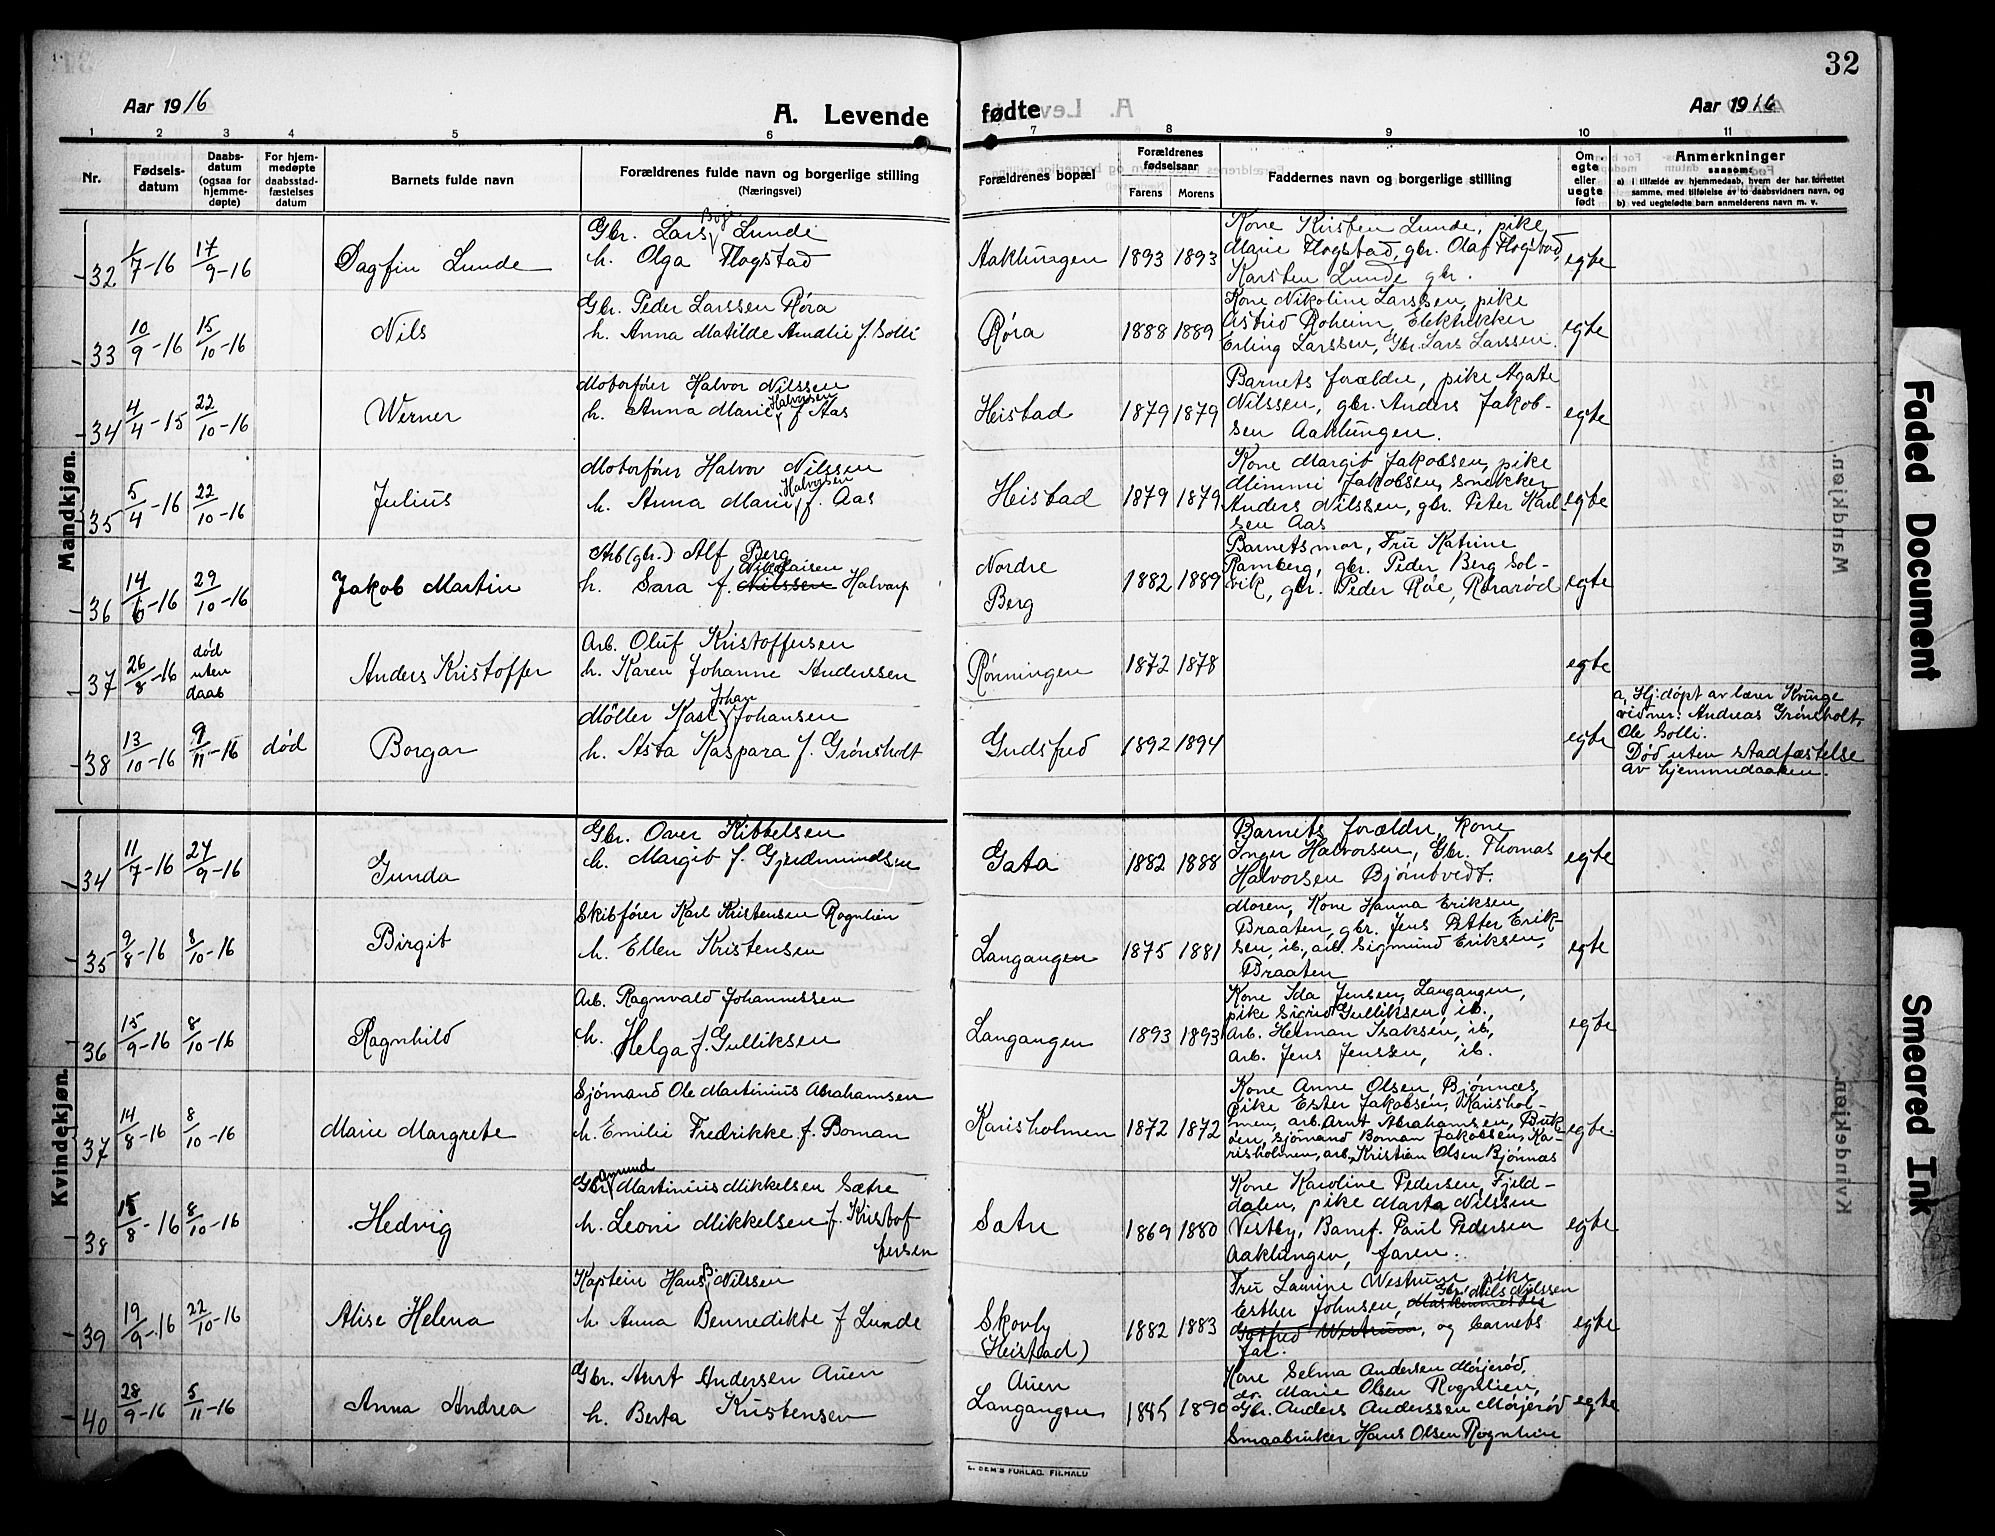 32
Aar 1916
A. Levende fødte
Aar 1916
1 2 3 4 5 6 7 8 9 10 11
Nr.
Fødsels-
datum
Daabs-
datum
(ogsaa for
hjemme-
døpte)
For hjem-
medøpte
daabsstad-
fæstelses
datum
Barnets fulde navn
Forældrenes fulde navn og borgerlige stilling
(Næringsvei)
Forældrenes bopæl
Forældrenes
fødselsaar
Farens Morens
Faddernes navn og borgerlige stilling
Om
egte
eller
uegte
født
Anmerkninger
saasom:
a) i tilfælde av hjemmedaab, hvem der har forrettet
samme, med tilføielse av to daabsvidners navn, og
b) ved uegtefødte barn anmelderens navn m. v.
Mandkjøn.
32 1/7-16 17/9-16 Dagfin Lunde
Gbr. Lars Lunde
h. Olga Flogstad
Aaklungen 1893 1893
Kone Kirsten Lunde, pike
Marie Flogstad, gbr. Olaf Flogstad,
Karsten Lunde gbr.
egte
33 10/9-16 15/10-16 Nils
Gbr. Peder Larssen Røra
h. Anna Matilde Amalie f. Solli
Røra 1888 1889
Kone Nikoline Larssen, pike
Astrid Roheim, Elektrikker
Erling Larssen, Gbr. Lars Larssen.
egte
34 4/4-15 22/10-16 Werner
Motorfører Halvor Nilssen
h. Anna Marie Halvorsen f. Aas
Heistad 1879 1879
Barnets forældre, pike Agate
Nilssen, gbr. Anders Jakob-
sen Aaklungen.
egte
35 5/4-16 22/10-16 Julius
Motorfører Halvor Nilssen
h. Anna Marie Halvorsen f. Aas
Heistad 1879 1879
Kone Margit Jakobsen, pike
Mimmi Jakobsen, snekker
Anders Nilssen, gbr. Peter Karl-
sen Aas
egte
36 14/6-16 29/10-16 Jakob Martin
Arb (gbr.) Alf Berg
h. Sara f. Nilssen Nikolaisen
Nordre
Berg
1882 1889
Barnets mor, Fru Katrine
Ramberg, gbr. Peder Berg Sol-
vik, gbr. Peder Røe, Rørarød
egte
37 26/8-16 død
uten
daab
Anders Kristoffer
Arb. Oluf Kristoffersen
h. Karen Johanne Anderssen
Rønningen 1872 1878 egte
38 13/10-16 9/11-16 død Borgar
Møller Karl Johan Johansen
h. Asta Kaspara f. Grønsholt
Gudsfred 1892 1894 egte
a, Hj.døpt av lærer Kvinge
vidner: Andreas Grønsholt,
Ole Solli.
Død uten stadfæstelse
av hjemmedaaben.
Kvindekjøn.
34 11/7-16 24/9-16 Gunda
Gbr. Over Kittelsen
h. Margit f. Gjurdmundsen
Gata 1882 1888
Barnets forældre, kone
Inger Halvorsen, Gbr. Thomas
Halvorsen Bjørntvedt.
egte
35 9/8-16 8/10-16 Birgit
Skibsfører Karl Kristensen Rognlien
h. Ellen Kristensen
Langangen 1875 1881
Moren, Kone Hanna Eriksen
Braaten, gbr. Jens Petter Erik-
sen, ib., arb. Sigmund Eriksen,
Braaten
egte
36 15/9-16 8/10-16 Ragnhild
Arb. Ragnvald Johannessen
h. Helga f. Gulliksen
Langangen 1893 1893
Kone Ida Jensen, Langangen,
pike Sigrid Gulliksen, ib.,
Arb. Herman Isaksen, ib,
arb. Jens Jenssen, ib.
egte
37 14/8-16 8/10-16 Marie Margrete
Sjømand Ole Martinius Abrahamsen
h. Emilie Fredrikke f. Boman
Karisholmen 1872 1872
Kone Anne Olsen Bjønnæs,
pike Ester Jakobsen, Karishol-
men, arb. Arnt Abrahamsen,
sjømand Boman Jakobsen, Ka-
risholmen, arb. Kristian Olsen Bjønnæs
egte.
38 15/8-16 8/10-16 Hedvig
Gbr. Amund Martinius Mikkelsen Sætre
h. Leoni Mikkelsen f. Kristof
fersen
Sætre 1869 1880
Kone Karoline Pedersen, Fjeld-
dalen, pike Marta Nilssen
Vestby, Banef. Paul Pedersen
Aaklungen, faren.
egte
39 19/9-16 22/10-16 Alise Helena
Kaptein Hans B. Nilssen
h. Anna Bennedikte f Lunde
Skovly
(Heistad)
1882 1883
Fru Lamine Westrum, pike
Esther Johnsen, Maskinmester Gbr. Nils Nilssen
Gotfred Westrum, og barnets
far.
egte
40 28/9-16 5/11-16 Anna Andrea
Gbr. Anrt Andersen Auen
h. Berta Kristensen
Auen
Langangen
1885 1890
Kone Selma Andersen Mørjerød,
do. Marie Olsen Rognlien,
Gbr. Anders Anderssen Mørjerød
Smaabruker Hans Olsen Rognlien
egte
E. SEM'S FORLAG, FR.HALD
Faded Document
Smeared Ink